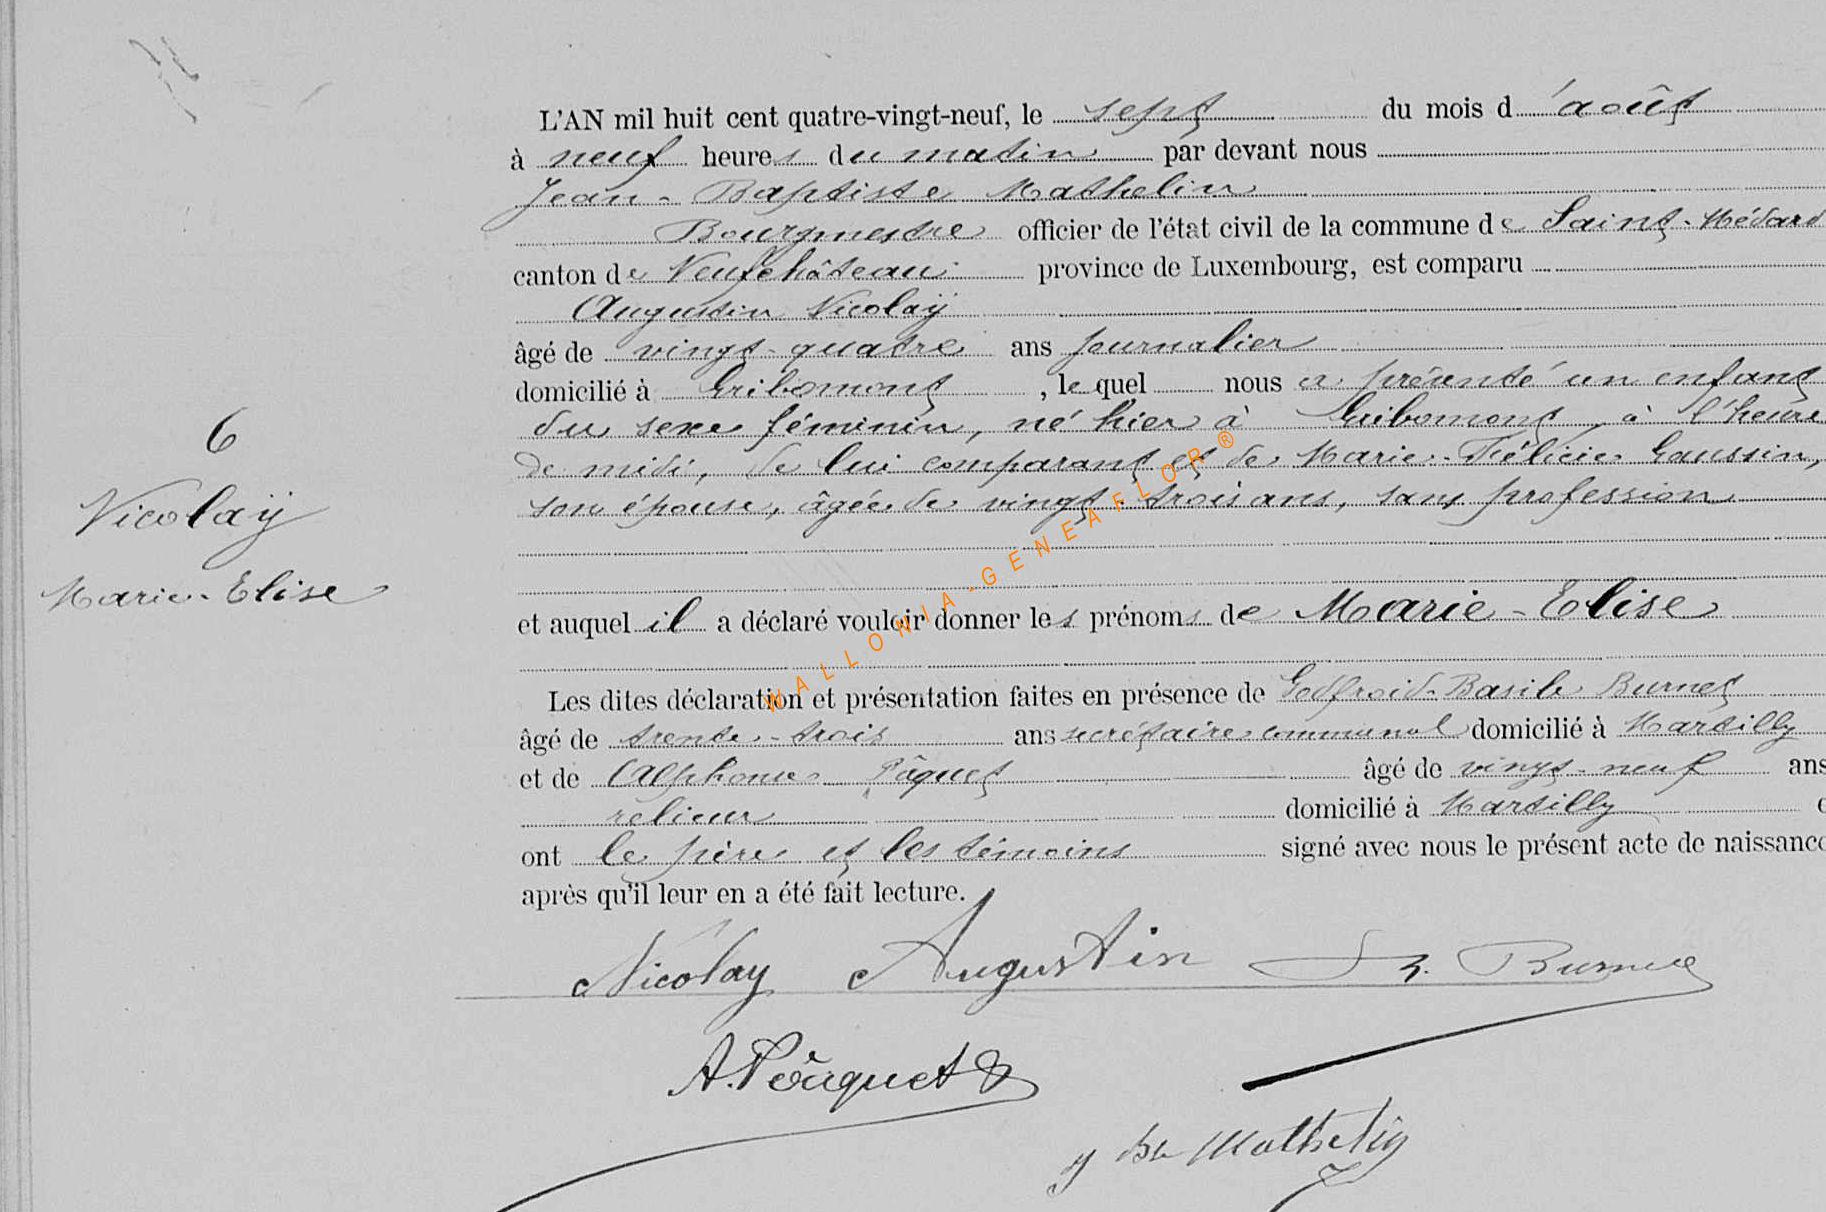 6
Nicolaÿ
Marie-Elise
L'AN mil huit cent quatre-vingt-neuf, le sept du mois d'août
à neuf heures du matin par devant nous
Jean-Baptiste Mathelin
Bourgmestre officier de l'état civil de la commune de Saint-Médard
canton de Neufchâteau province de Luxembourg, est comparu
Augustin Nicolaÿ
âgé de vingt-quatre ans journalier
domicilié à Gribomont, le quel nous a présenté un enfant
du sexe féminin, né hier à Gribomont, à l'heure
de midi, de lui comparant et de Marie-Félicie Gaussin,
son épouse, âgée de vingt-trois ans, sans profession
et auquel il a déclaré vouloir donner les prénoms de Marie-Elise
Les dites déclaration et présentation faites en présence de Godfroid-Basile Burnet
âgé de trente-trois ans secrétaire communal domicilié à Martilly
et de Alphonse Pâquet âgé de vingt-neuf ans
relieur domicilié à Martilly
ont le père et les témoins signé avec nous le présent acte de naissance
après qu'il leur en a été fait lecture.
Nicolay Augustin Burnet
A. Pâquet
J Bte Mathelin
WALLONIA-GENEAFLOR®